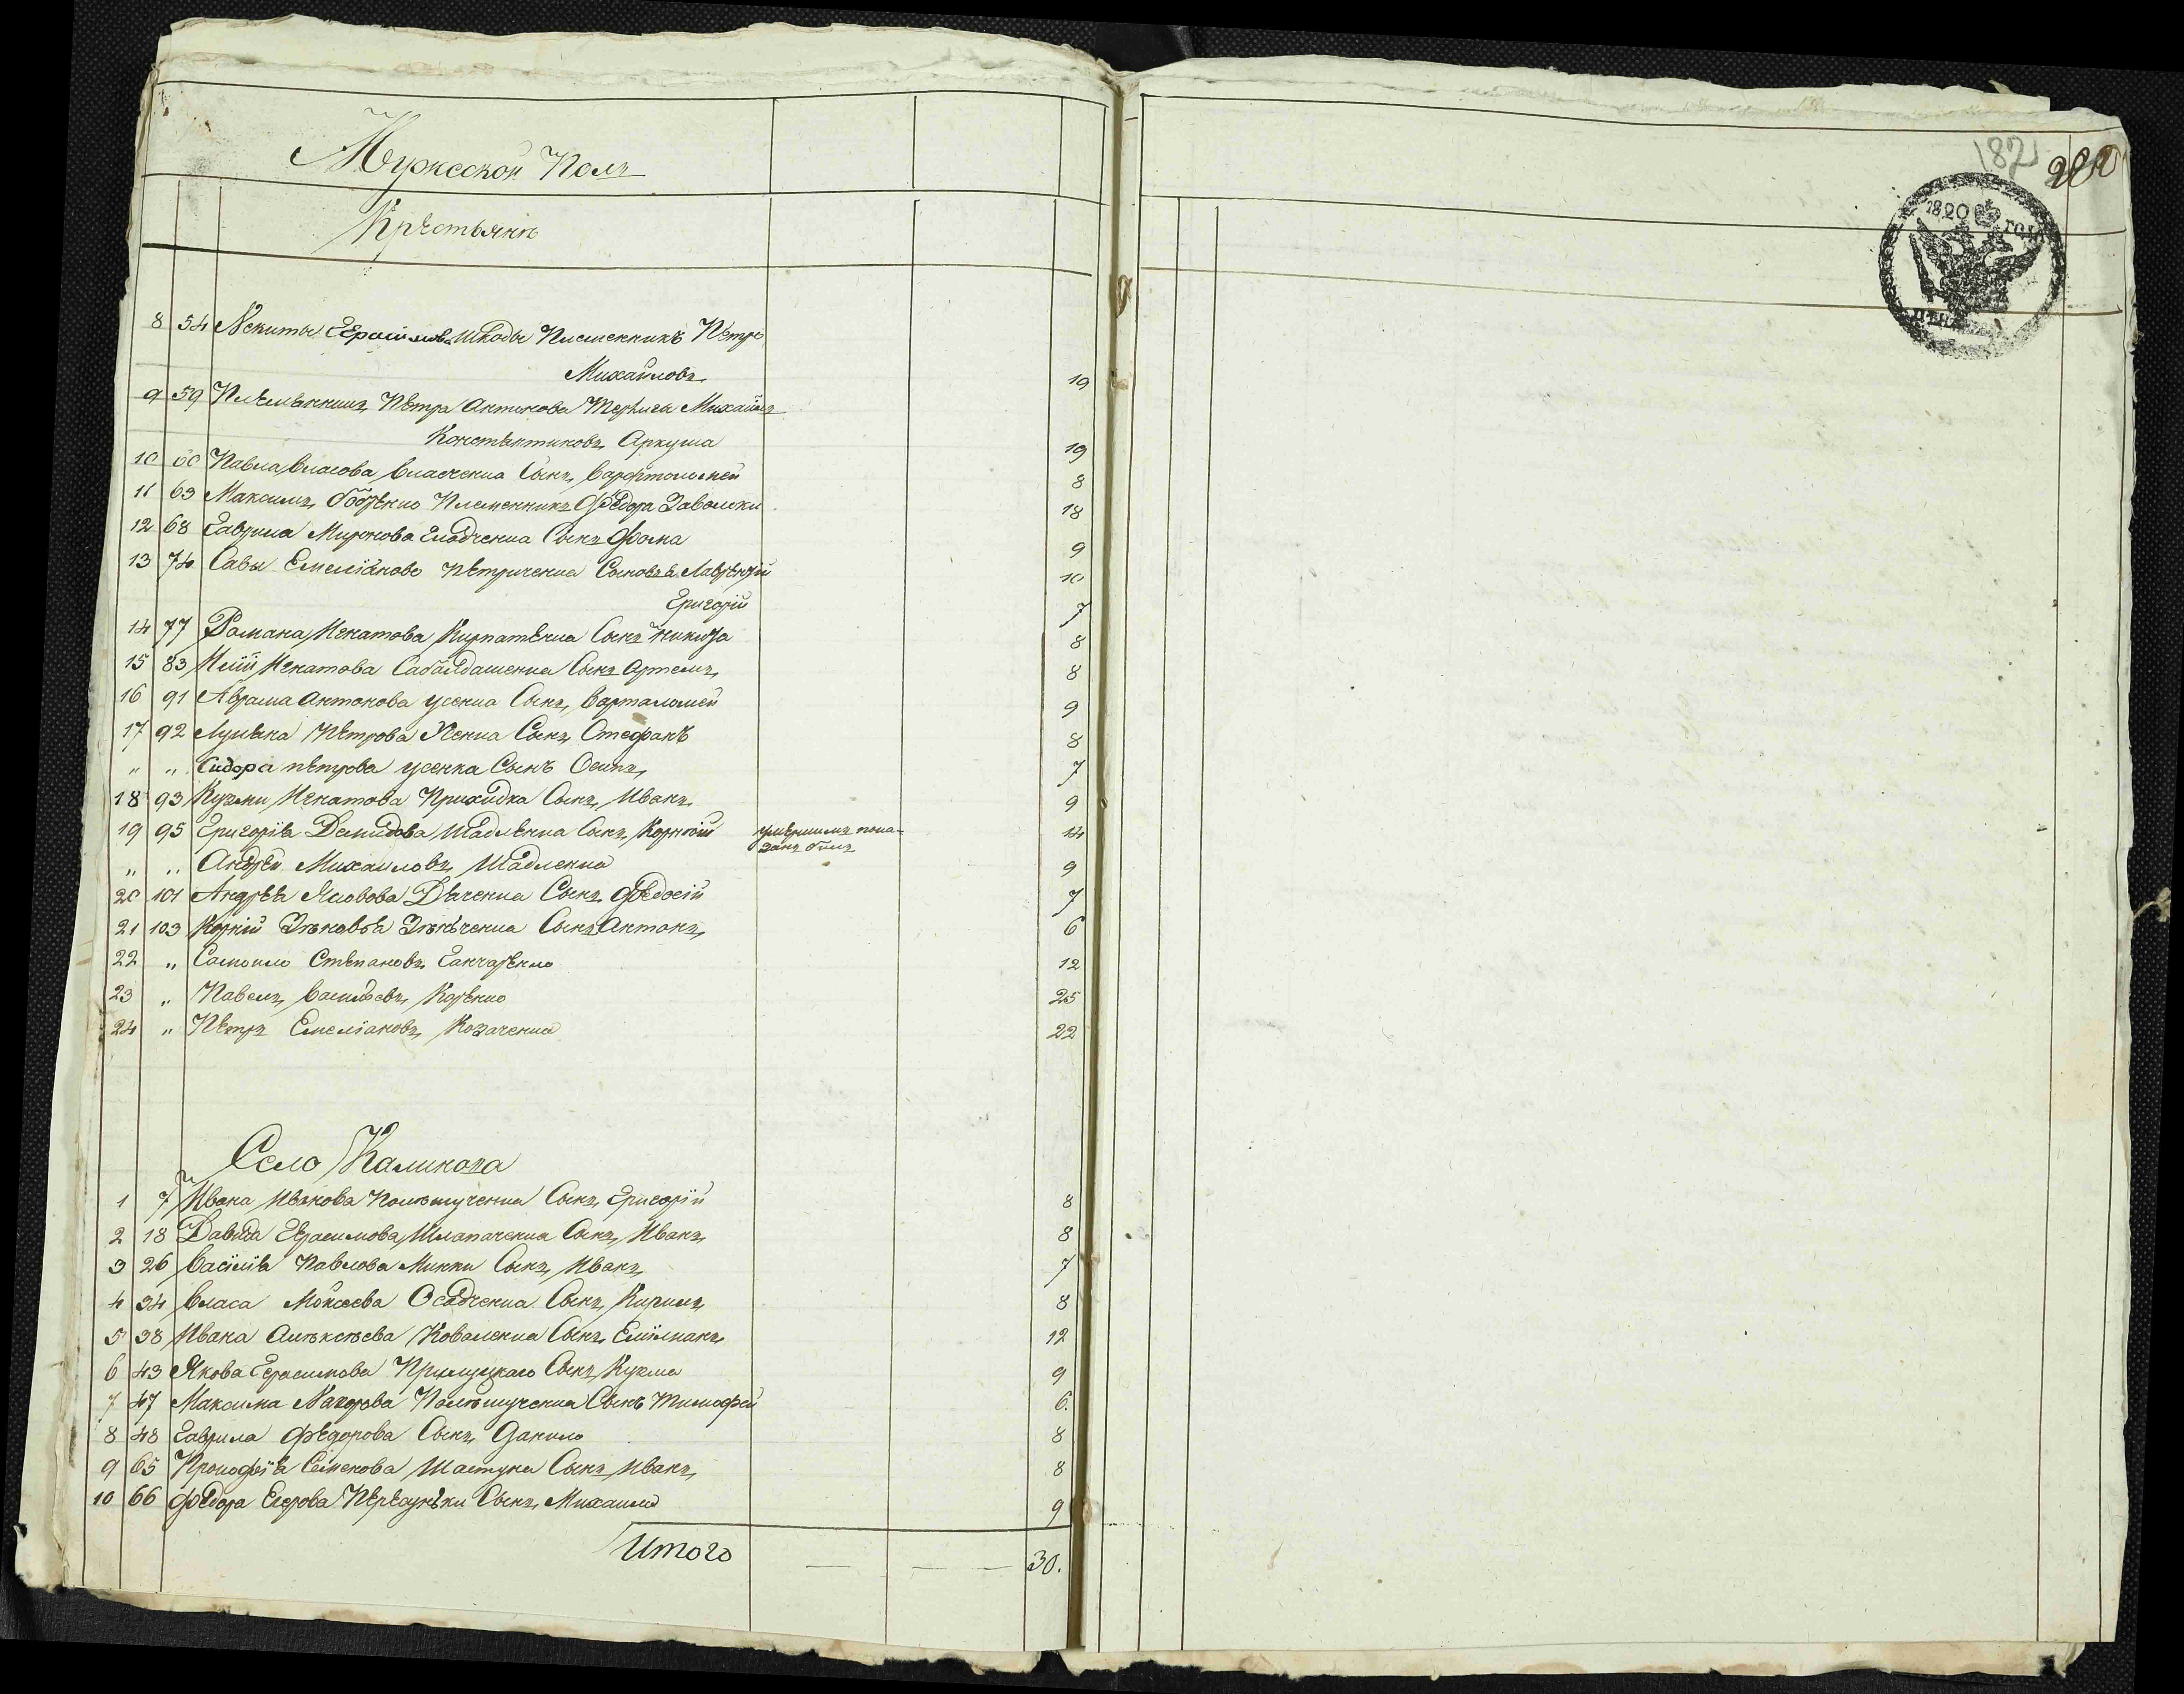 Мужескои Полъ
Крестьянъ
8 54 Никиты Герасимова Шкоды Племенникъ Петро
Михайловъ 19
9 59 Племенникъ Петра Антонова Михайла
Константиновъ Аркуша 19
10 60 Павла Власова Власченка Сынъ Варфтоломей 8
11 63 Максимъ Бобренко Племенникъ Федора Заволоки 18
12 68 Гаврила Миронова Гладченка Сынъ Фома 9
13 74 Савы Емелianова Петриченка Сыновья Лаврентiй 10
Григорiй 7
14 77 Романа Игнатова Курпатенка Сынъ Никита 8
15 83 Илiи Игнатова Сабалдашенка Сынъ Артемъ 8
16 91 Аврама Антонова Усенка Сынъ Вартоломей 9
17 92 Лукьяна Петрова Усенка Сынъ Стефанъ 8
„ „ Сидора петрова усенка Сынъ Осипъ 7
18 93 Кузмы Игнатова Приходка Сынъ Иванъ 9
19 95 Григорiя Демидова Шадленка Сынъ Корнiй умершимъ пока-
занъ былъ 14
„ „ Андрей Михаиловъ Шадленко 9
20 101 Андрея Яковова Дяченка Сынъ Федосiй 7
21 103 Корнiй Зѣновья Зѣнченка Сынъ Антонъ 6
22 „ Самоило Степановъ Ганчаренко 12
23 „ Павелъ Васильевъ Коренко 25
24 „ Петръ Емелiановъ Козаченко 22
Село Калинова
1 7 Ивана Иванова Сынъ Григорiй 8
2 18 Давида Герасимова Шлапаченка Сынъ Иванъ 8
3 26 Василiя Павлова Минки Сынъ Иванъ 7
4 34 Власа Моисеева Осадченка Сынъ Кирилъ 8
5 38 Ивана Алексѣева Коваленка Сынъ Емiлианъ 12
6 43 Якова Герасимова Прилуцкаго Сынъ Кузма 9
7 47 Максима Сынъ Тимофей 6.
8 48 Гаврила Федорова Сынъ Данило 8
9 65 Прокофiя Семенова Шастуна Сынъ Иванъ 8
10 66 Федора Егорова Сынъ Михаило 9
Итого 30.
182
1820 ГОДА
ЦѢНА